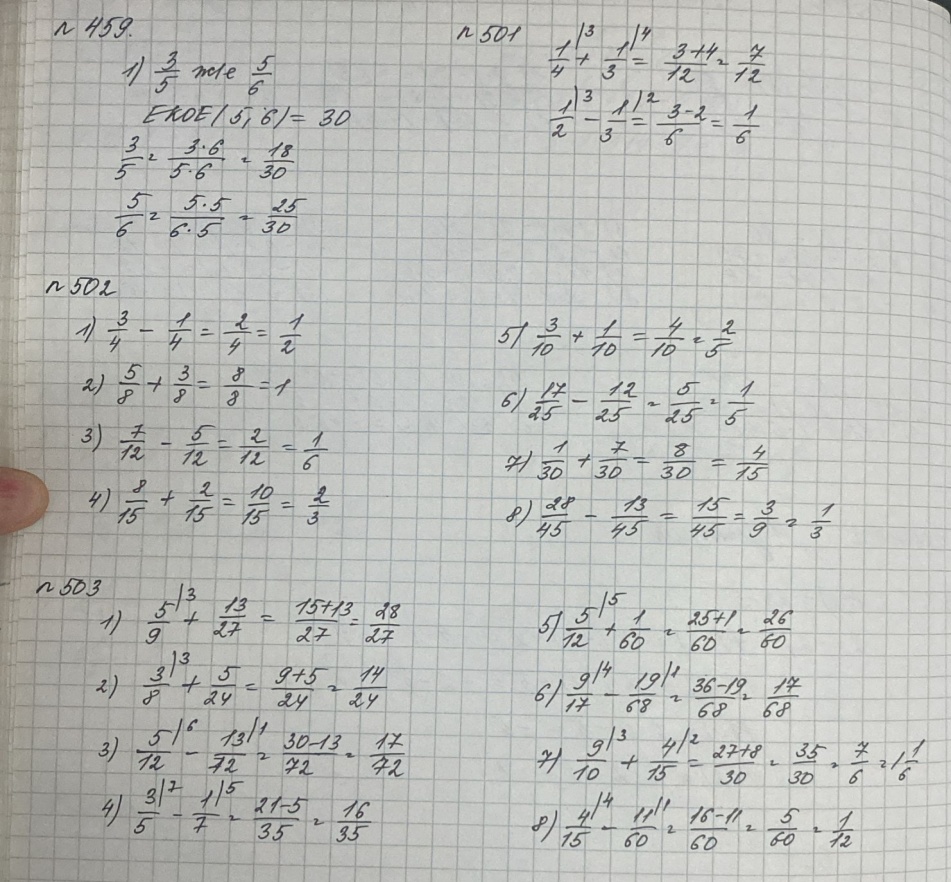 № 459.
1) 3/5 және 5/6
ЕКОЕ(5; 6) = 30
3/5 = 3·6/5·6 = 18/30
5/6 = 5·5/6·5 = 25/30
№ 501
1/4 |3 + 1/3 |4 = 3+4/12 = 7/12
1/2 |3 - 1/3 |2 = 3-2/6 = 1/6
№ 502
1) 3/4 - 1/4 = 2/4 = 1/2
2) 5/8 + 3/8 = 8/8 = 1
3) 7/12 - 5/12 = 2/12 = 1/6
4) 8/15 + 2/15 = 10/15 = 2/3
5) 3/10 + 1/10 = 4/10 = 2/5
6) 17/25 - 12/25 = 5/25 = 1/5
7) 1/30 + 7/30 = 8/30 = 4/15
8) 28/45 - 13/45 = 15/45 = 3/9 = 1/3
№ 503
1) 5/9 |3 + 13/27 = 15+13/27 = 28/27
2) 3/8 |3 + 5/24 = 9+5/24 = 14/24
3) 5/12 |6 - 13/72 |1 = 30-13/72 = 17/72
4) 3/5 |7 - 1/7 |5 = 21-5/35 = 16/35
5) 5/12 |5 + 1/60 = 25+1/60 = 26/60
6) 9/17 |4 - 19/68 |1 = 36-19/68 = 17/68
7) 9/10 |3 + 4/15 |2 = 27+8/30 = 35/30 = 7/6 = 1 1/6
8) 4/15 |4 - 11/60 |1 = 16-11/60 = 5/60 = 1/12